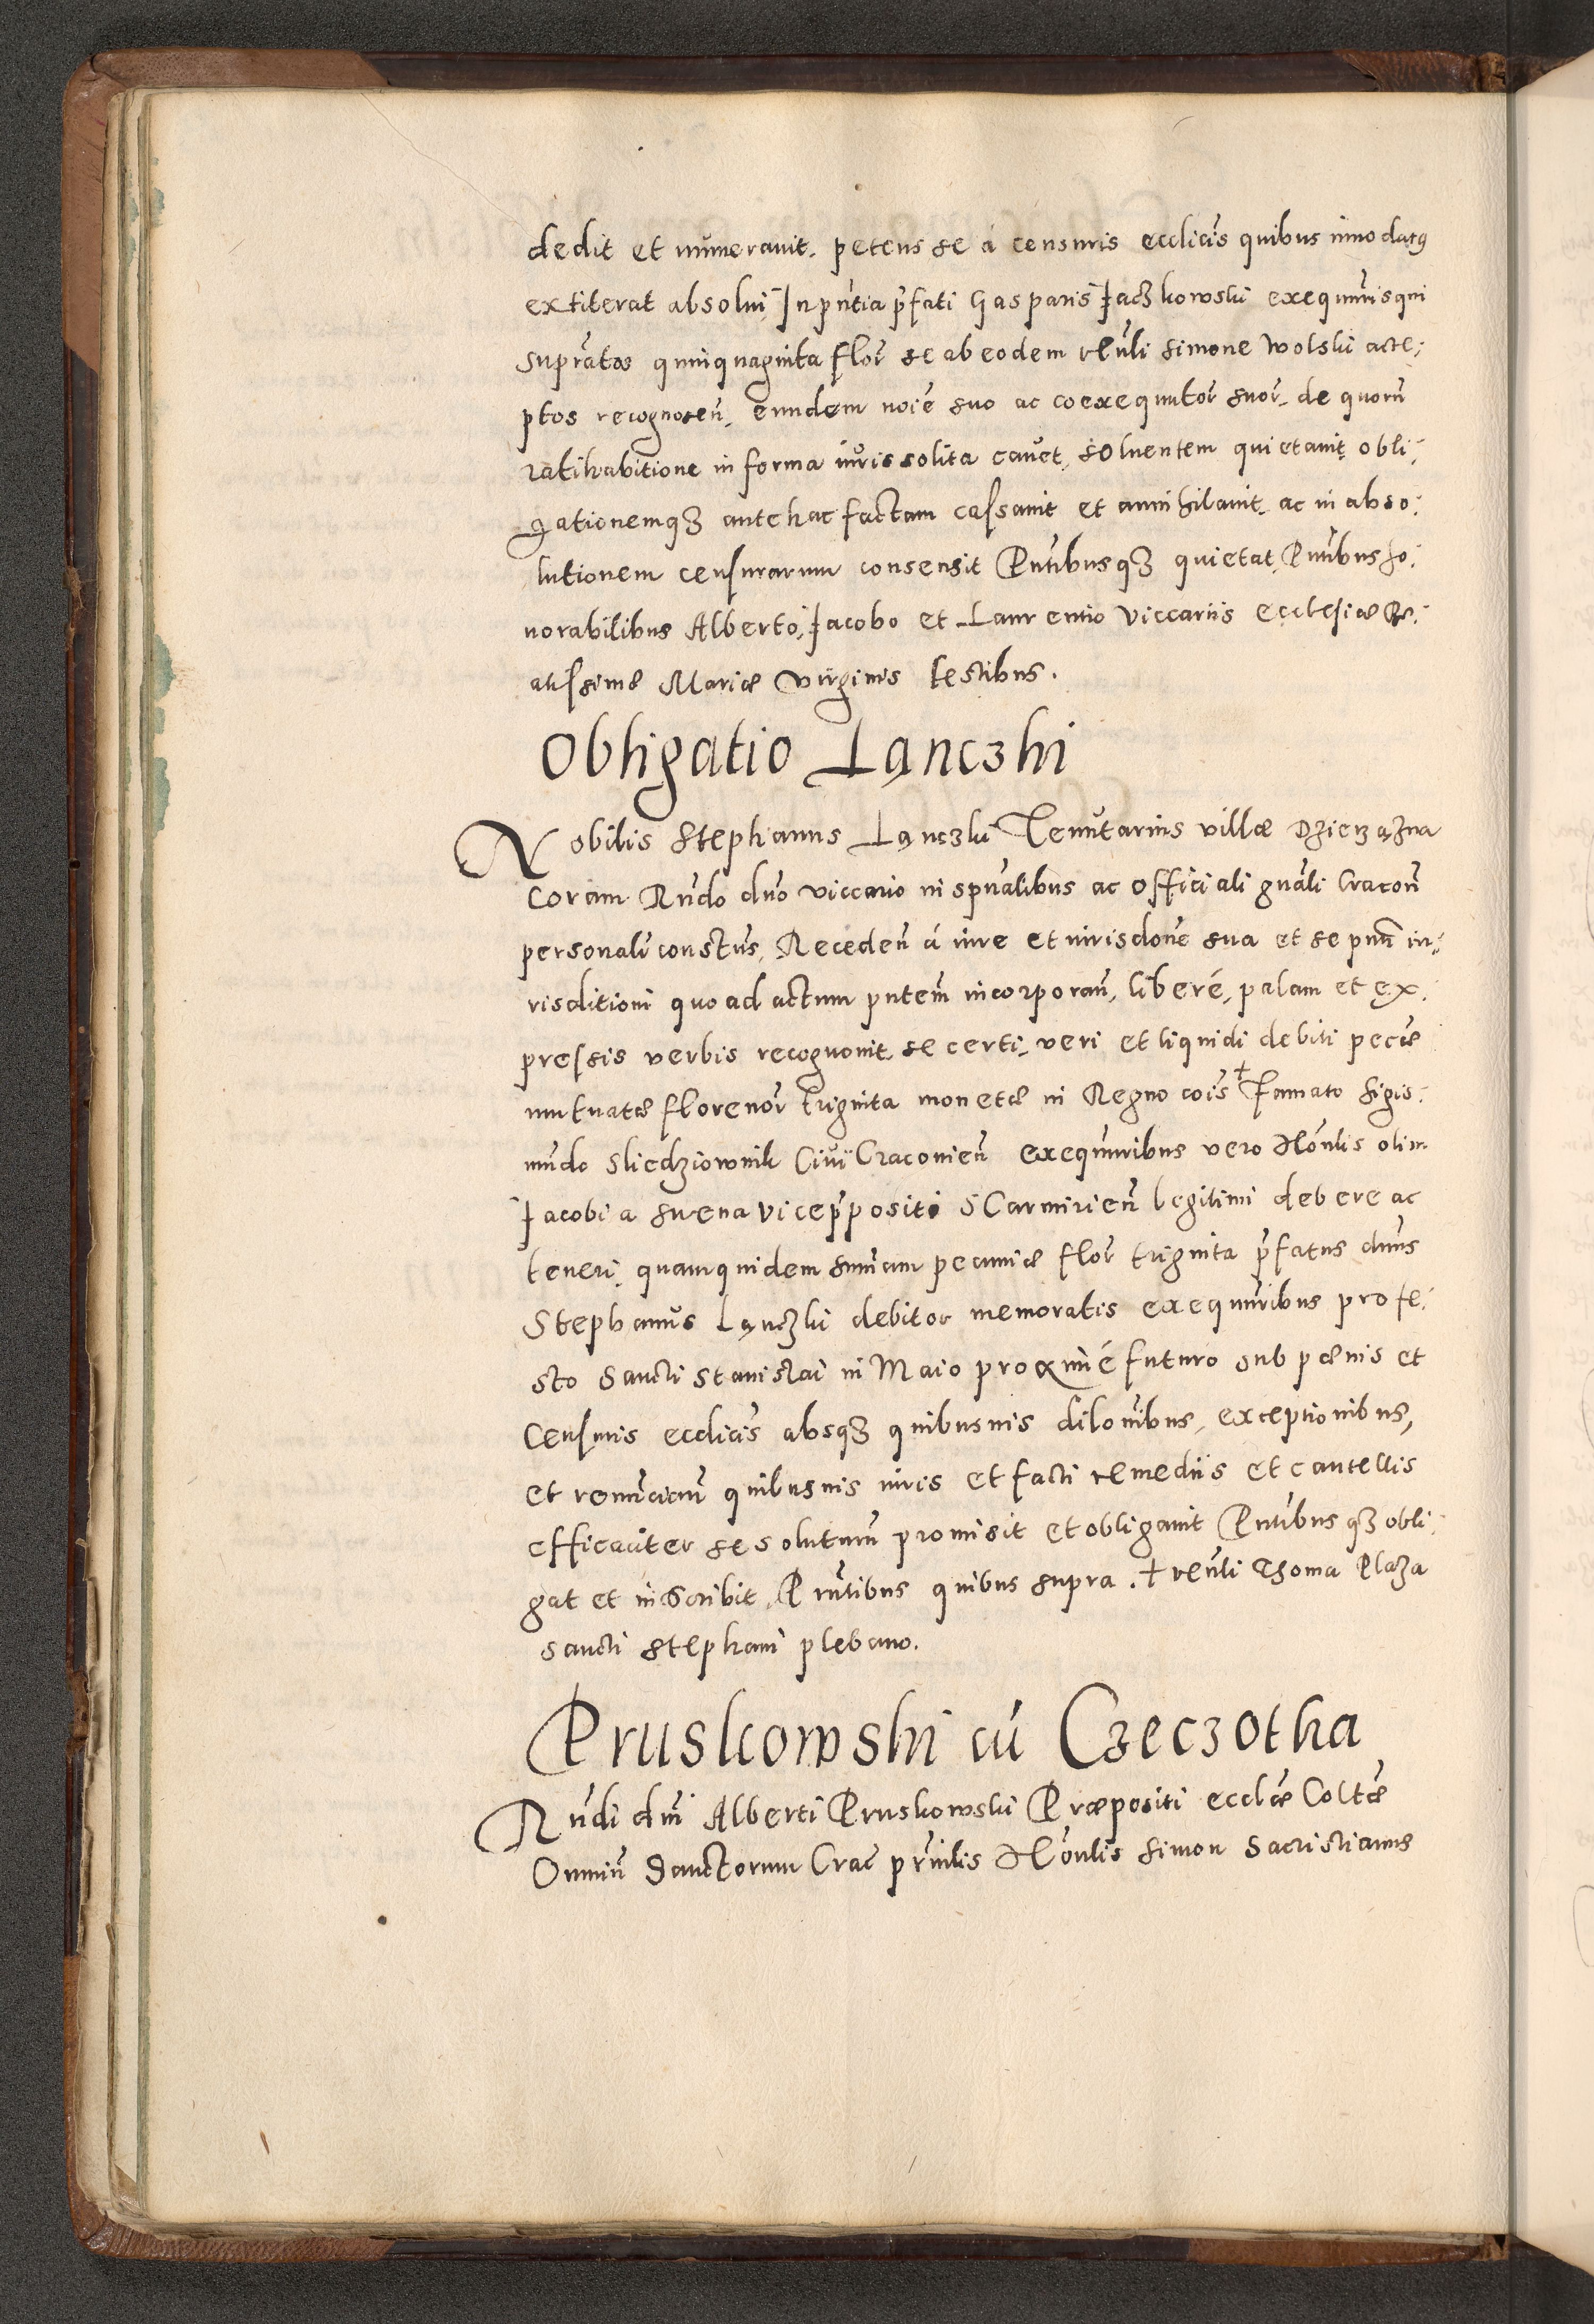 dedit et numerauit. petens se á censuris ecclicis quibus innodatus
extiterat absolui, In pñtia pfati Gasparis Jaczkowski exequutris qui
suprãtos quinquaginta flor̃ se ab eodem vẽnli Simone Wolski acce:
ptos recognoscen̄. eundem noĩe suo ac coexequutor̃ suor̃. de quorũ
ratihabitione in forma iuris solita cauet, soluentem quietauit, obli:
gationemq3 antehac factam cassauit et annihilauit. ac in abso:
lutionem censurarum consensit Pñtibusq3 quietat, Pñtibus ho:
norabilibus Alberto, Jacobo et Laurentio Viccariis ecclesiæ Be:
atissimæ Mariæ Virginis testibus.
Obligatio Lączki
Nobilis Stephanus Lączki Tenutarius villæ Dzierzązna
Coram Rñdo dño viccario in spũalibus ac officiali gñali Cracon̄
personalr̃ constus, Receden̄ á iure et iurisdone sua et se pñti iu:
risditioni quo ad actum pñtem incorporan̄, liberé, palam et ex:
pressis verbis recognouit se certi, veri et liquidi debiti pecæ
mutuatæ florenor̃ triginta monetæ in Regno cois + Famato Sigis:
mundo Sliedziownik Ciui Cracouien̄ exequutoribus vero Honlis olim
Jacobi a Suena viceppositi SCarmirien̄ legitimi debere ac
teneri. quamquidem summam pecuniæ flor̃ triginta pfatus dnus
Stephanus Lanczki debitor memoratis exequutoribus pro fe:
sto Sancti Stanislai in Maio proximé futuro sub pænis et
Censuris ecclicis absq3 quibusuis dilonibus, exceptionibus,
et renunciam̃ quibusuis iuris et facti remediis et cautellis
efficaciter se soluturũ promisit et obligauit Pñtibusq3 obli:
gat et inscribit, Pñtibus quibus supra. + vẽnli Thoma Plaza
Sancti Stephani plebano.
Pruskowski cú Czeczotka
Rñdi dñi Alberti Pruskowski Præpositi ecclæ Coltæ
Omniũ Sanctorum Crac prinlis Honlis Simon Sacristianus